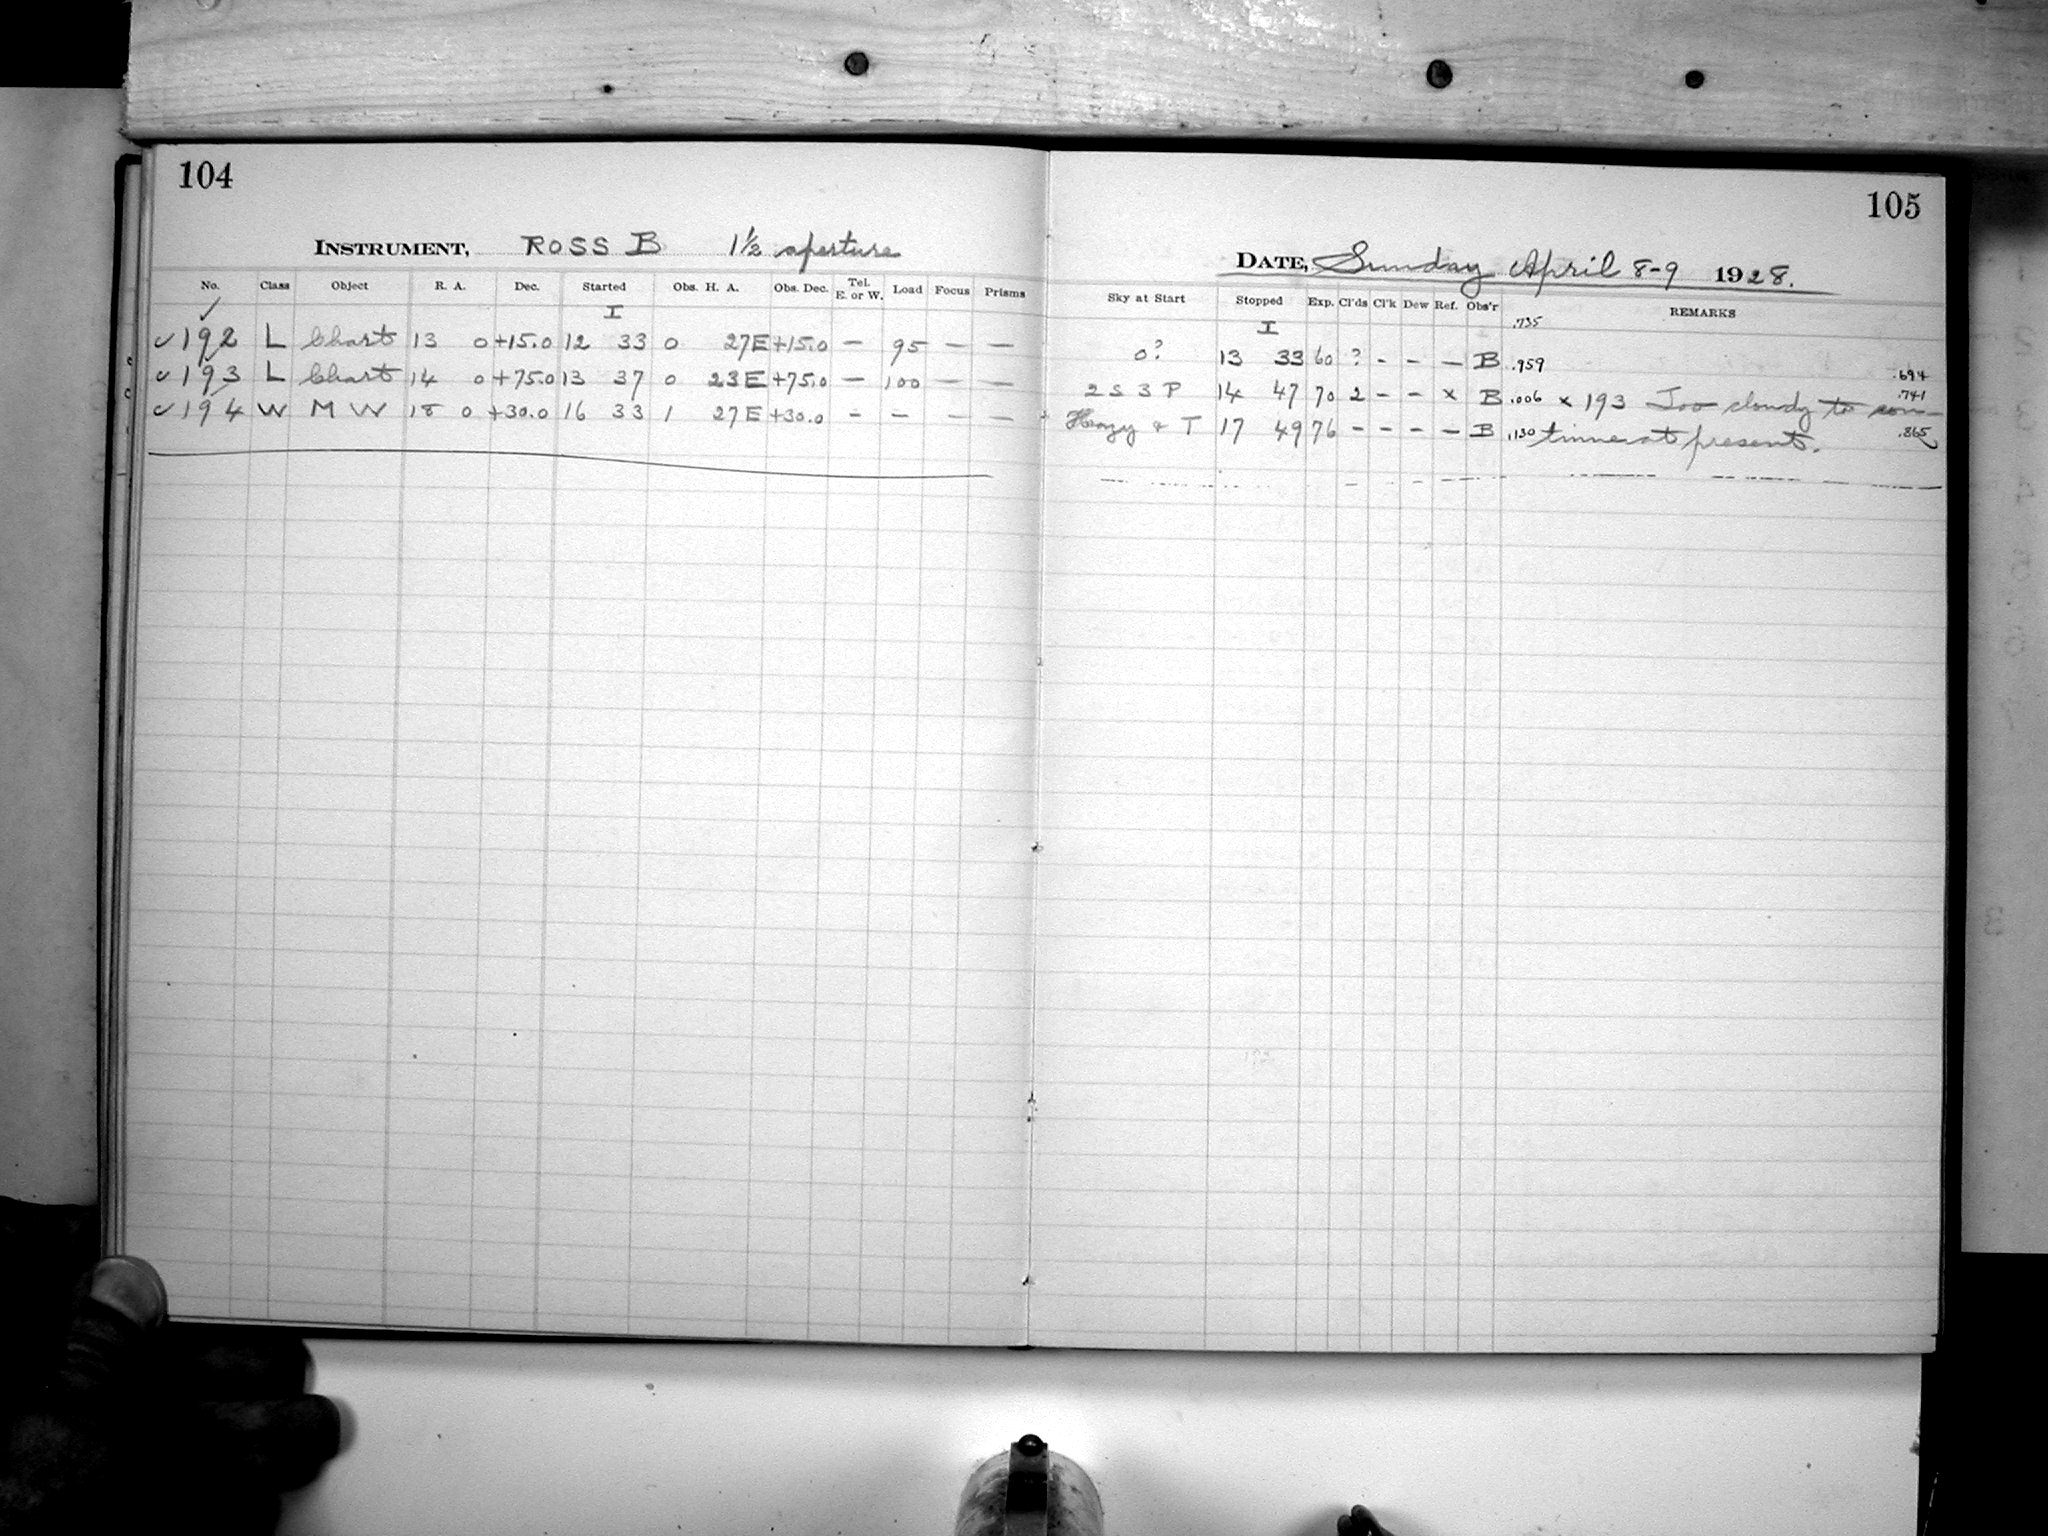 104
INSTRUMENT, ROSS B 1½ aperture
No. Class Object R. A. Dec. Started Obs. H. A. Obs. Dec. Tel. E. or W. Load Focus Prisms
✓ I
✓ 192 L Chart 13 0 +15.0 12 33 0 27E +15.0 — 95 — —
✓ 193 L Chart 14 0 +75.0 13 37 0 23E +75.0 — 100 — —
✓ 194 W M W 18 0 +30.0 16 33 1 27E +30.0 - - — —
105
DATE, Sunday April 8-9 1928.
Sky at Start Stopped Exp. Cl'ds Cl'k Dew Ref. Obs'r REMARKS
I .735
0? 13 33 60 ? - - — B .959 .694
2 S 3 P 14 47 70 2 - - x B .006 x 193 Too cloudy to con- .741
Hazy & T 17 49 76 - - - — B .130 tinue at present. .865